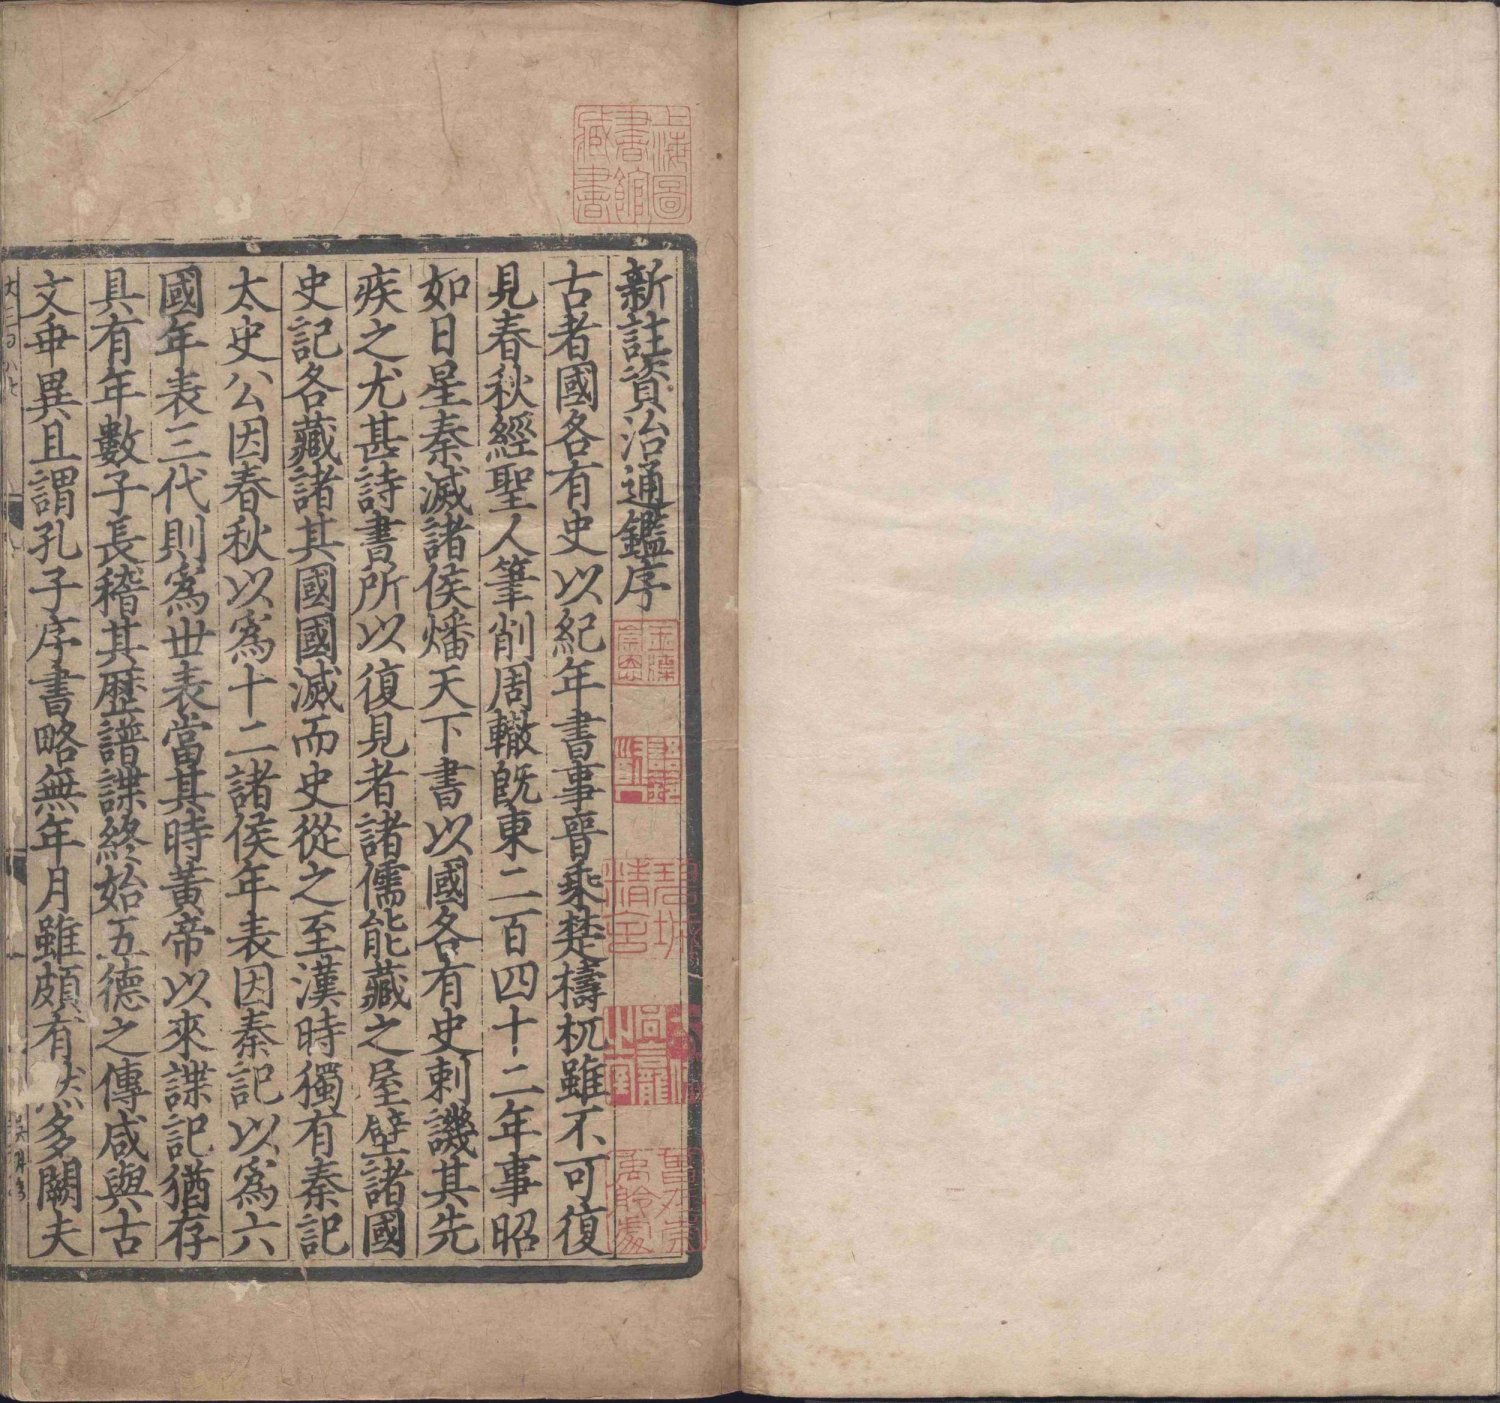 新註資治通鑑序
古者國各有史以紀年書事晉乘楚檮杌雖不可復
見春秋經聖人筆削周轍旣東二百四十二年事昭
如日星秦滅諸侯燔天下書以國各有史刺譏其先
疾之尤甚詩書所以復見者諸儒能藏之屋壁諸國
史記各藏諸其國國滅而史從之至漢時獨有秦記
太史公因春秋以爲十二諸侯年表因秦記以爲六
國年表三代則爲世表當其時黃帝以來諜記猶存
具有年數子長稽其歷譜諜終始五德之傳咸與古
文乖異且謂孔子序書略無年月雖頗有然多闕夫
上海圖書館藏書